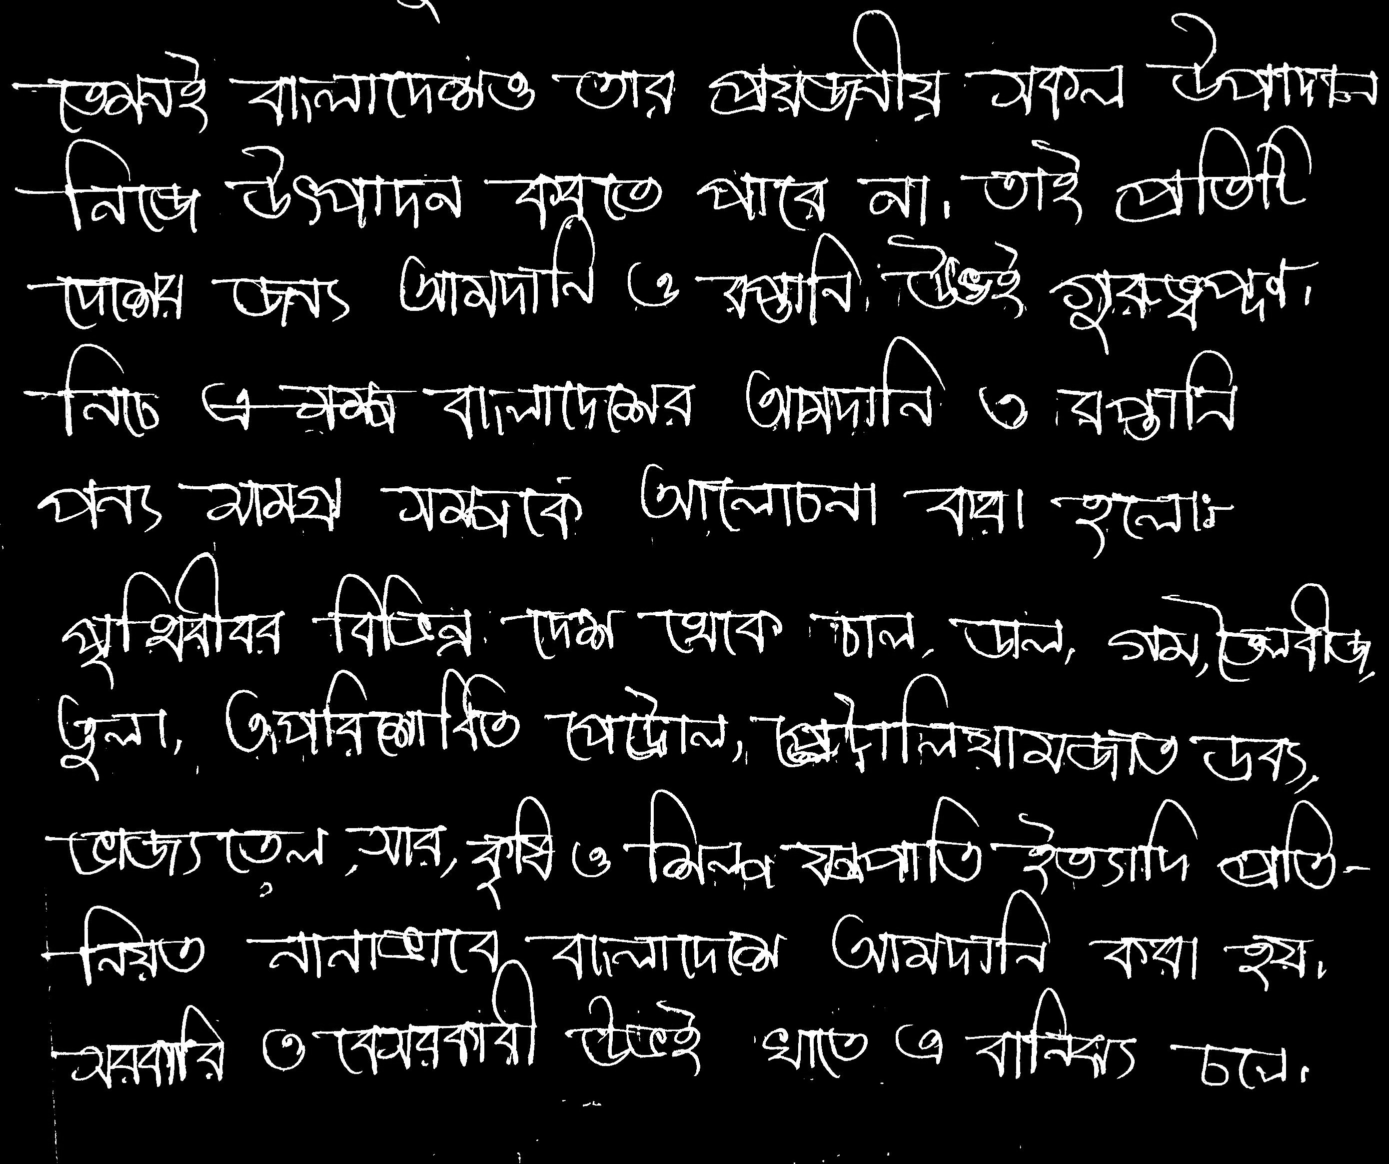 তেমনই বাংলাদেশও তার প্রয়জনীয় সকল উপাদান
নিজে উৎপাদন করতে পারে না। তাই প্রতিটি
দেশের জন্য আমদানি ও রপ্তানি উভই গুরুত্বপূর্ণ।
নিচে এ সম্প বাংলাদেশের আমদানি ও রপ্তানি
পন্য সামগ্র সম্পর্কে আলোচনা করা হলোঃ
পৃথিবীবর বিভিন্ন দেশ থেকে চাল, ডাল, গম, তৈলবীজ,
তুলা, অপরিশোধিত পেট্রোল, পেট্রোলিয়ামজাত ডব্য,
ভোজ্য তেল, সার, কৃষি ও শিল্প যন্ত্রপাতি ইত্যাদি প্রতি-
নিয়ত নানাভাবে বাংলাদেশে আমদানি করা হয়।
সরকারি ও বেসরকারী উভই খাতে এ বানিজ্য চলে।